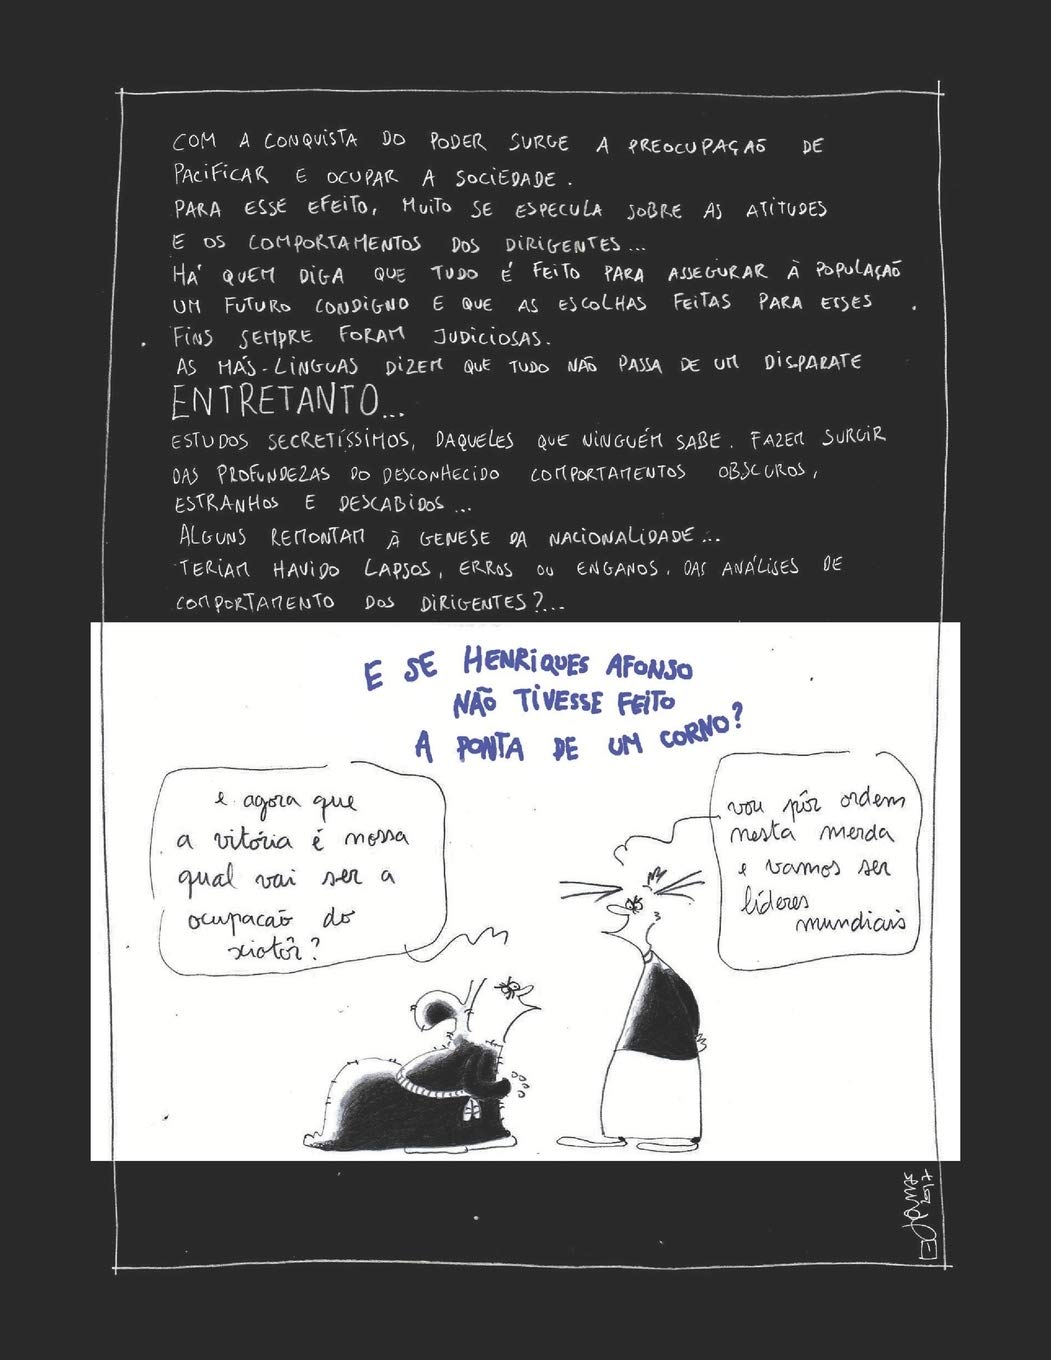 COM A CONQUISTA DO PODER SURGE A PREOCUPAÇAÕ DE
PACIFICAR E OCUPAR A SOCIEDADE.
PARA ESSE EFEITO, MUITO SE ESPECULA SOBRE AS ATITUDES
E OS COMPORTAMENTOS DOS DIRIGENTES...
HÁ QUEM DIGA QUE TUDO É FEITO PARA ASSEGURAR À POPULAÇAÕ
UM FUTURO CONDIGNO E QUE AS ESCOLHAS FEITAS PARA ESSES
FINS SEMPRE FORAM JUDICIOSAS.
AS MÁS-LINGUAS DIZEM QUE TUDO NÃO PASSA DE UM DISPARATE
ENTRETANTO...
ESTUDOS SECRETÍSSIMOS, DAQUELES QUE NINGUÉM SABE. FAZEM SURGIR
DAS PROFUNDEZAS DO DESCONHECIDO COMPORTAMENTOS OBSCUROS,
ESTRANHOS E DESCABIDOS...
ALGUNS REMONTAM À GENESE DA NACIONALIDADE...
TERIAM HAVIDO LAPSOS, ERROS OU ENGANOS. DAS ANÁLISES DE
COMPORTAMENTO DOS DIRIGENTES?...
E SE HENRIQUES AFONSO
NÃO TIVESSE FEITO
A PONTA DE UM CORNO?
e agora que
a vitória é nossa
qual vai ser a
ocupacaõ do
xiotôr?
vou pôr ordem
nesta merda
e vamos ser
líderes
mundiais
2017